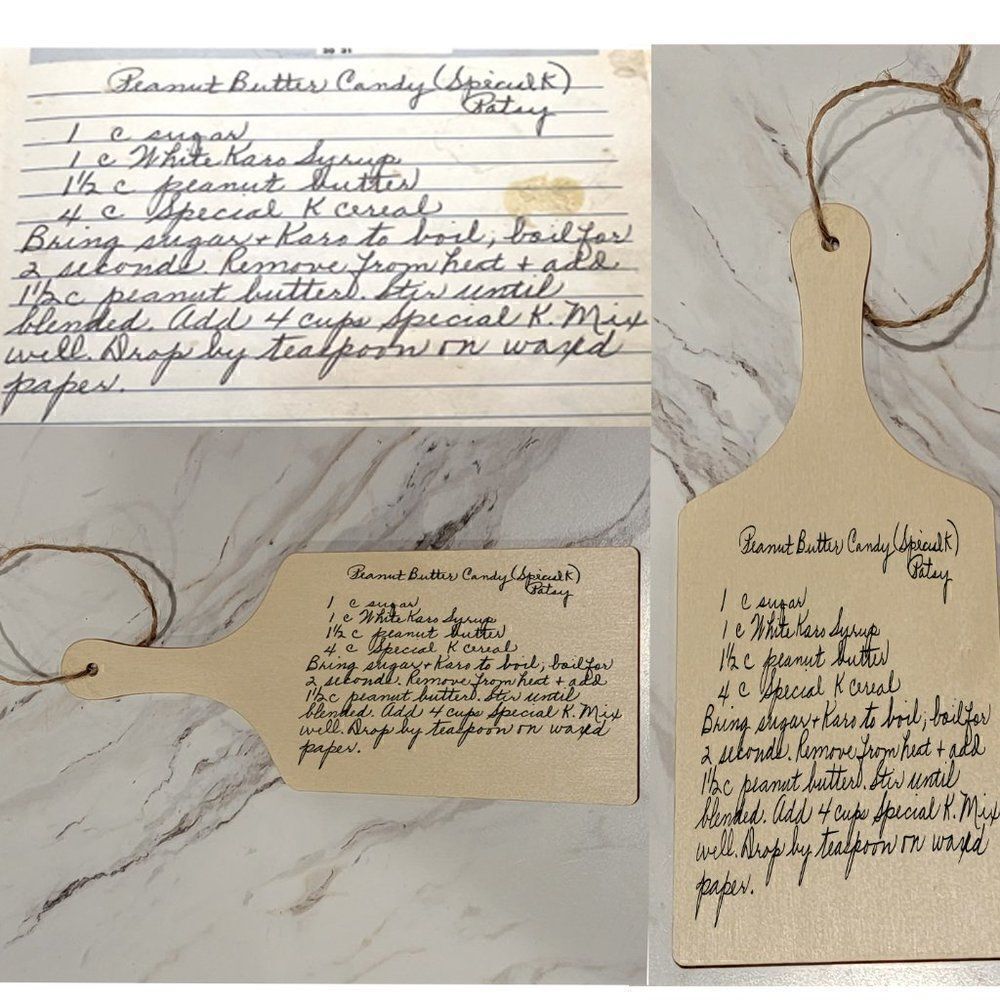 20 21
Peanut Butter Candy (Special K)
Patsy
1 c sugar
1 c White Karo Syrup
1½ c peanut butter
4 c Special K cereal
Bring sugar + Karo to boil; boil for
2 seconds. Remove from heat + add
1½ c peanut butter. Stir until
blended. Add 4 cups Special K. Mix
well. Drop by teaspoon on waxed
paper.
Peanut Butter Candy (Special K)
Patsy
1 c sugar
1 c White Karo Syrup
1½ c peanut butter
4 c Special K cereal
Bring sugar + Karo to boil; boil for
2 seconds. Remove from heat + add
1½ c peanut butter. Stir until
blended. Add 4 cups Special K. Mix
well. Drop by teaspoon on waxed
paper.
Peanut Butter Candy (Special K)
Patsy
1 c sugar
1 c White Karo Syrup
1½ c peanut butter
4 c Special K cereal
Bring sugar + Karo to boil; boil for
2 seconds. Remove from heat + add
1½ c peanut butter. Stir until
blended. Add 4 cups Special K. Mix
well. Drop by teaspoon on waxed
paper.